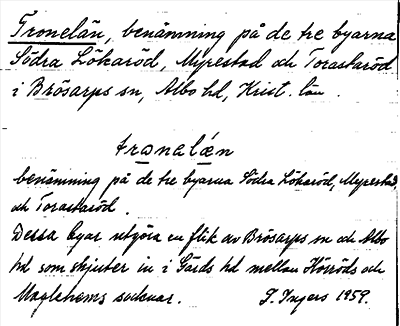 Tronelän, benämning på de tre byarna
Södra Lökaröd, Myrestad och Torastaröd
i Brösarps sn, Albo hd, Krist. län.
trønelǽn
benämning på de tre byarna Södra Lökaröd, Myrestad,
och Torastaröd.
Dessa byar utgöra en flik av Brösarps sn och Albo
hd som skjuter in i Gärds hd mellan Hörröds och
Maglehems socknar. I. Ingers 1959.